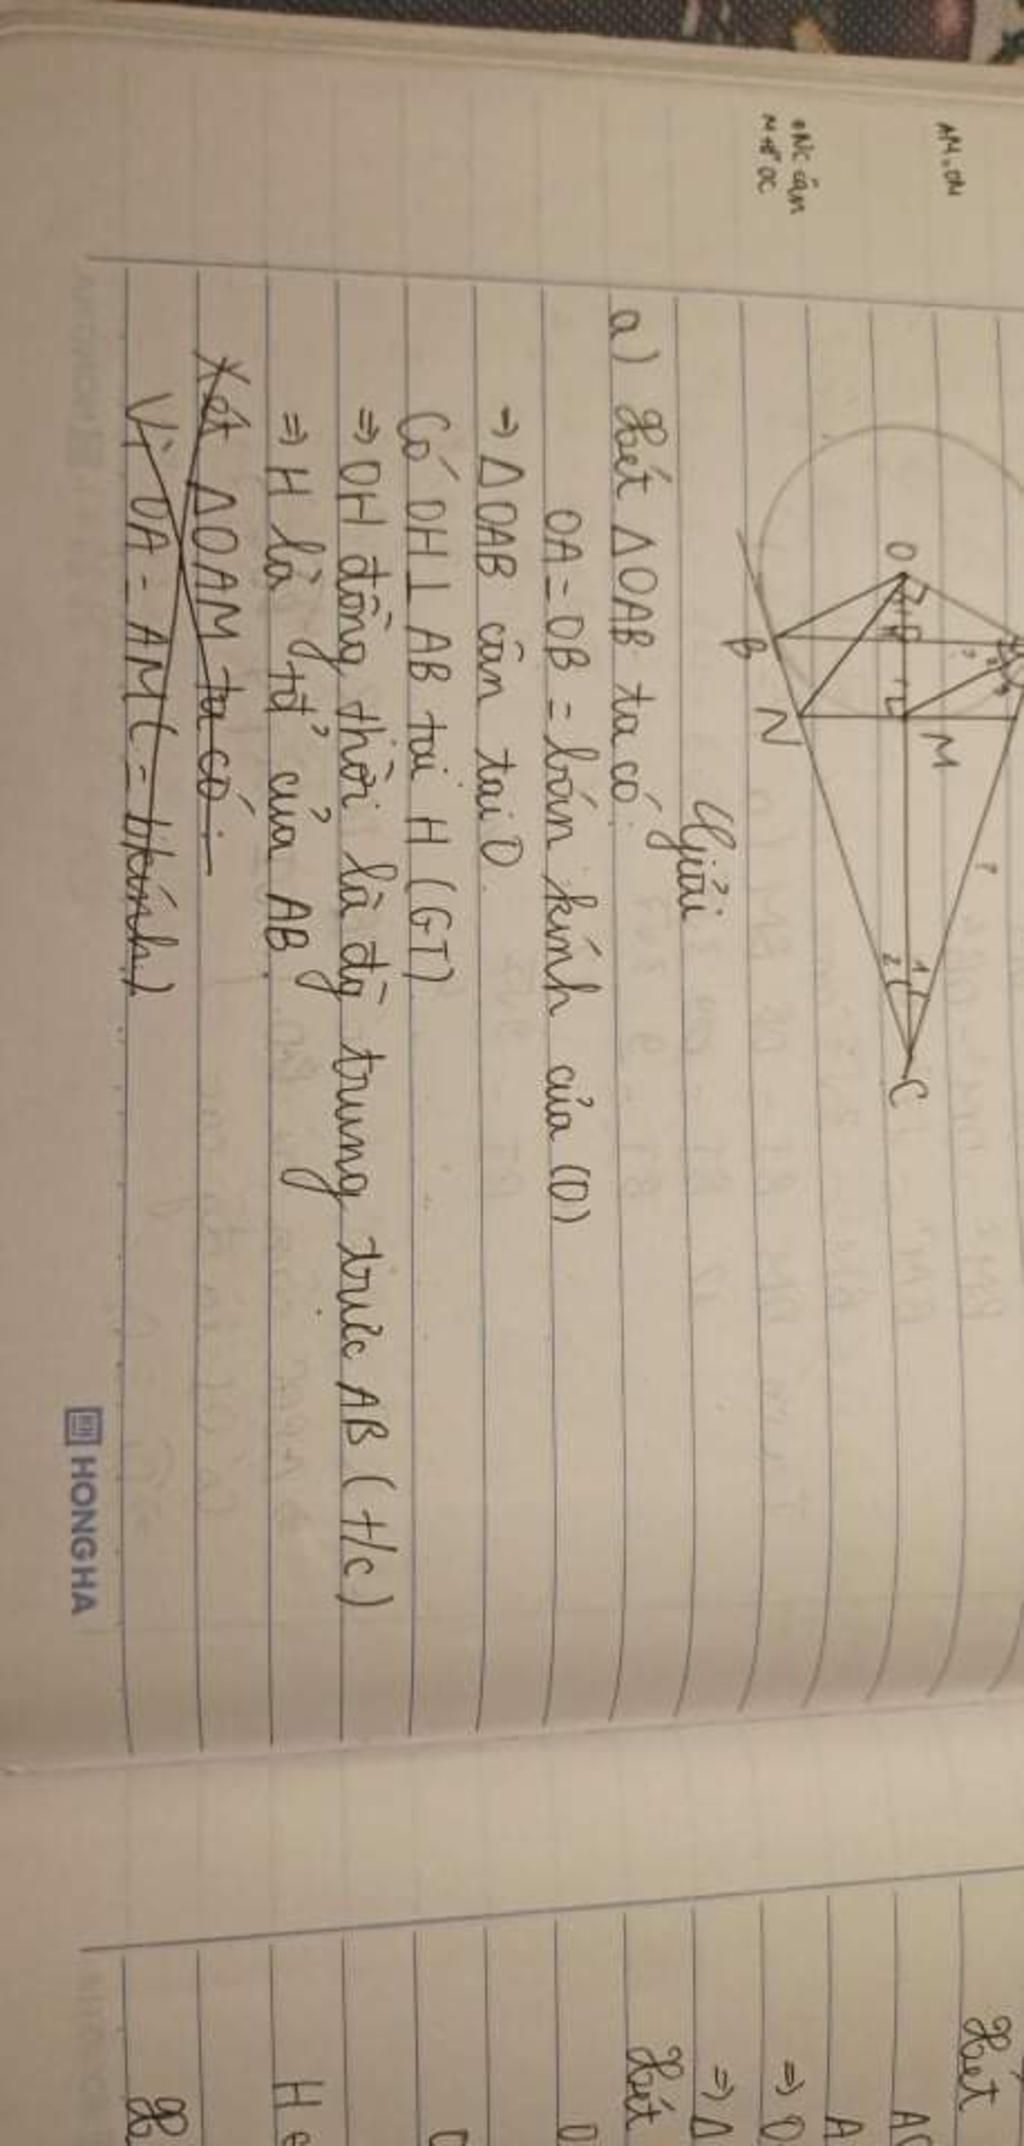 AM=OM
ONC cân
O
A
B
N
M
C
1
2
Giải
a) Xét ΔOAB ta có:
OA = OB = bán kính của (O)
⇒ ΔOAB cân tại O.
Có OH ⊥ AB tại H (GT)
⇒ OH đồng thời là đg trung trực AB (t/c)
⇒ H là tđ của AB.
Xét ΔOAM ta có:
Vì OA = AM (= bkính)
HONG HA
Xét
⇒ O
⇒ Δ
Xét
H